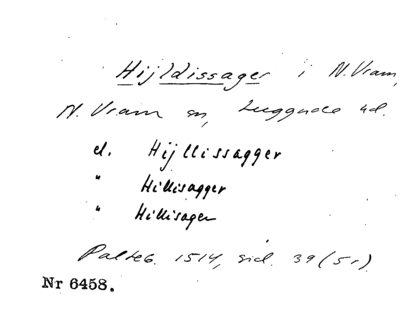 Hijldissager i N. Vram,
N. Vram sn, Luggude hd.
el. Hijllissagger
" Hillisagger
" Hillisager
Palteb. 1514, sid. 39 (51)
Nr 6458.